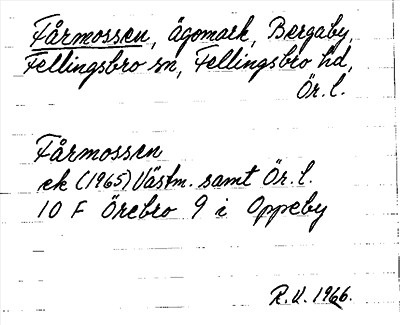 Fårmossen, ägomark, Bergaby,
Fellingsbro sn, Fellingsbro hd,
Ör. l.
Fårmossen
ek (1965) Västm. samt Ör. l.
10 F Örebro 9 i Oppeby
R.V. 1966.